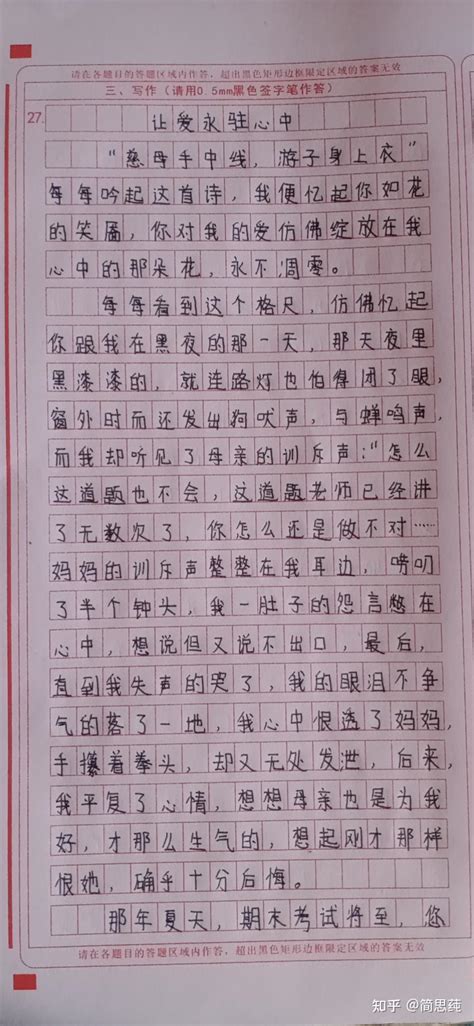 请在各题目的答题区域内作答，超出黑色矩形边框限定区域的答案无效
三、写作（请用0.5mm黑色签字笔作答）
27.
让爱永驻心中
“慈母手中线，游子身上衣”
每每吟起这首诗，我便忆起你如花
的笑靥，你对我的爱仿佛绽放在我
心中的那朵花，永不凋零。
每每看到这个格尺，仿佛忆起
你跟我在黑夜的那一天，那天夜里
黑漆漆的，就连路灯也怕得闭了眼，
窗外时而还发出狗吠声，与蝉鸣声，
而我却听见了母亲的训斥声：“怎么
这道题也不会，这道题老师已经讲
了无数次了，你怎么还是做不对……
妈妈的训斥声整整在我耳边，唠叨
了半个钟头，我一肚子的怨言憋在
心中，想说但又说不出口，最后，
直到我失声的哭了，我的眼泪不争
气的落了一地，我心中恨透了妈妈，
手攥着拳头，却又无处发泄，后来，
我平复了心情，想想母亲也是为我
好，才那么生气的，想起刚才那样
恨她，确乎十分后悔。
那年夏天，期末考试将至，您
请在各题目的答题区域内作答，超出黑色矩形边框限定区域的答案无效
知乎 @简思莼